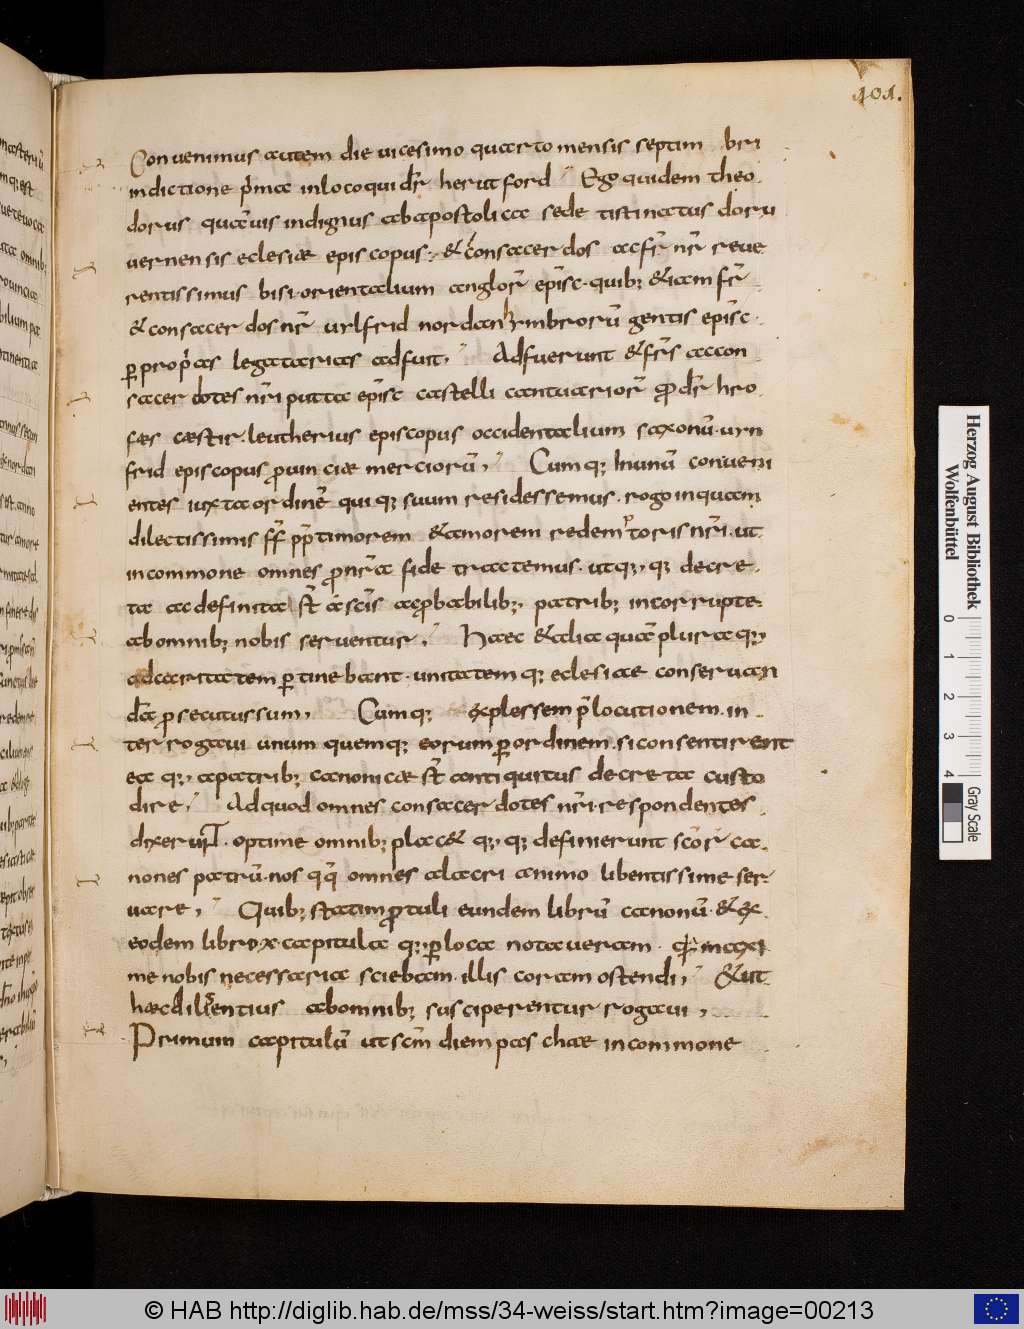 101.
Conuenimus autem die uicesimo quarto mensis septim bri
indictione p̄ma inloco qui dr̄ herutford Ego quidem theo
dorus quāuis indignus ab apostolica sede tistinatus doru
uernensis eclesiæ episcopus & consacerdos ac fr̄ nr̄ reue
rentissimus bisi orientalium anglor̄ episc̄ quib; & iam fr̄
& consacerdos nr̄ uilfrid nordanhrmbrorū gentis episc̄
p̱ proprias legatarias adfuit, Adfuerunt & frs̄ ac con
sacerdotes nr̄i putta episc̄ castelli cantuarior̄ ꝓ dr̄ hro
fæs cæstir. leutherius episcopus occidentalium saxonū. uyn
frid episcopus prouinciæ merciorū, Cumq; Inunū conueni
entes iuxta ordinē quiq; suum residessemus. rogo inquam
dilectissimis ff̄ pp̄ timorem & amorem redemptoris nr̄i. ut
in commone omnes ꝓ nr̄a fide tractemus. utq; q; decre
ta ac definita st̄ a scīs ac ꝓbabilib; patrib; incorrupte
ab omnib; nobis seruentur, Haec & alia quā plura q;
ad caritatem p̱tinebant. unitatemq; eclesiae conseruan
da ꝓsecutus sum, Cumq; explessem p̄locutionem. in
terrogaui unum quemq; eorum p̱ ordinem. si consentirent
ea q; a patrib; canonicæ st̄ antiquitus decreta custo
dire, Ad quod omnes consacerdotes nr̄i respondentes
dixerunt. optime omnib; plac& q; q; definierunt scōr̄ ca
nones patrū. nos qq̄ omnes alacri animo libentissime ser
uare, Quib; statim ꝓtuli eundem librū canonū. & ex
eodem libro x capitula q; p̱ loca notaueram. q̄ maxi
me nobis necessaria sciebam. illis coram ostendi, & ut
haec diligentius ab omnib; susciperentur rogaui,
Primum capitulū ut sc̄m diem paschae in commone
Herzog August Bibliothek
Wolfenbüttel
0 1 2 3 4
Gray Scale
© HAB http://diglib.hab.de/mss/34-weiss/start.htm?image=00213